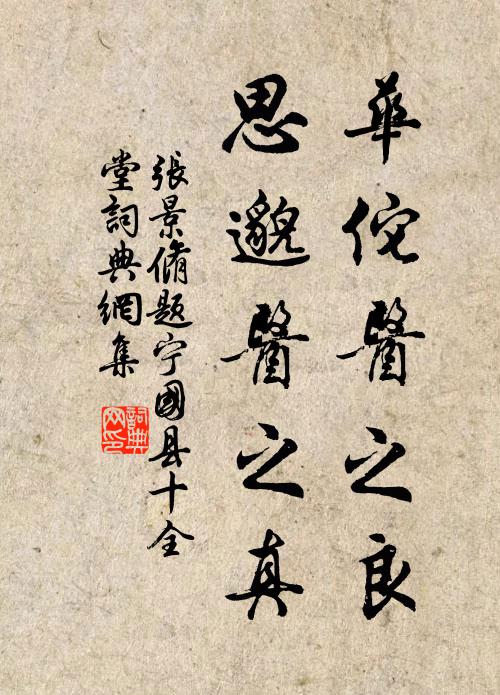 華佗醫之良
思邈醫之真
張景脩題宁國县十全
堂詞典網集
詞典
网印